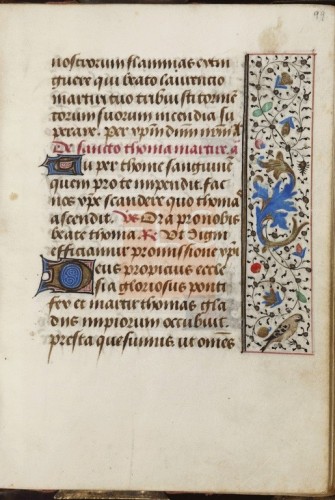 nostrorum flammas extin
guere qui beato laurencio
martiri tuo tribuisti torme̅
torum suorum incendia su
perare. Per xp̅m dn̅m nr̅m. A
De sancto thoma martire. a̅
Tu per thome sanguine̅
quem pro te impendit. fac
nos xp̅e scandere quo thoma
ascendit. Vs Ora pro nobis
beate thoma. R̅ Ut digni
efficiamur promissione xp̅i
Deus pro cuius eccle
sia gloriosus ponti
fex et martir thomas gla
diis impiorum occubuit.
presta quesumus, ut om̅es